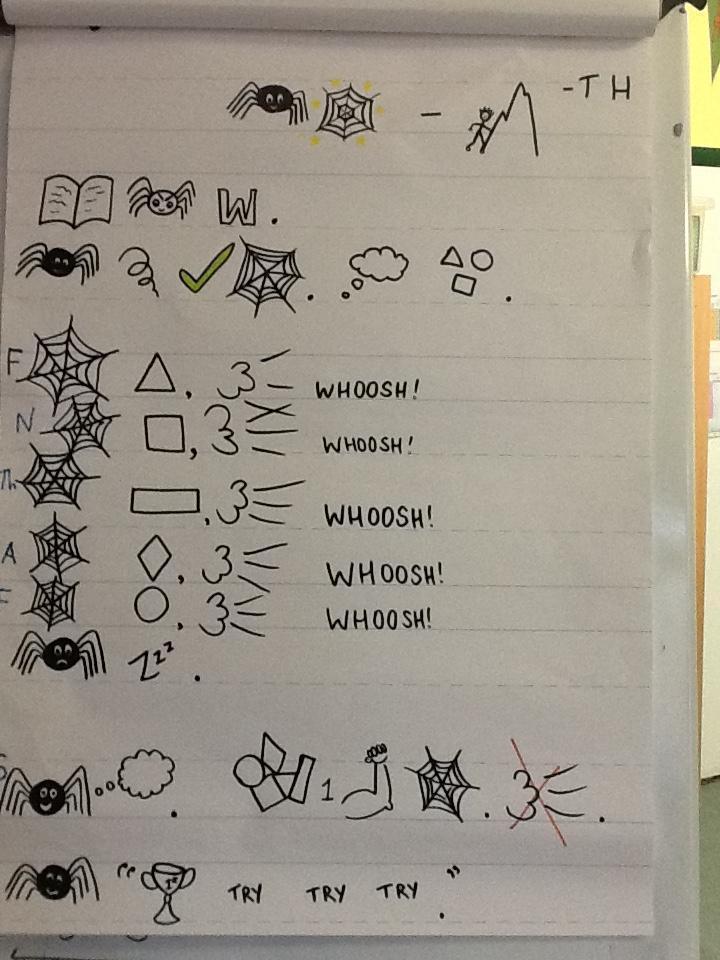 - -TH
W.
F WHOOSH!
N WHOOSH!
Th WHOOSH!
A WHOOSH!
WHOOSH!
Zzz.
1
" 1st TRY TRY TRY."